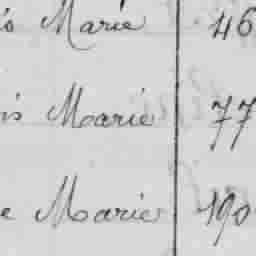 is Marie 46
is Marie 77
e Marie 190